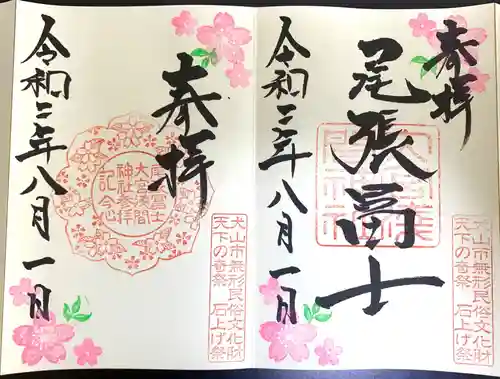 奉拝
尾張冨士
犬山市無形民俗文化財
天下の奇祭 石上げ祭
令和三年八月一日
奉拝
尾張冨士
大宮浅間
神社参拝
記念
犬山市無形民俗文化財
天下の奇祭 石上げ祭
令和三年八月一日